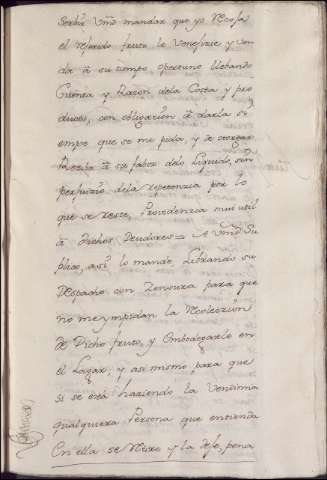 Serbir Vmd mandar que yo Recoja
el referido fruto le Veneficie y ven
da a su tiempo oportuno llebando
Cuenta y Razon dela Costa y pro
ductos, con obligazion a darla si
empre que se me pida, y de otorgar
a su fabor delo Liquido, sin
perjuizio dela por lo
que se reste, Providencia mui util
a dichos Deudores = A Vmd Su
plico, asi lo mande, librando su
Despacho con Zensura para que
no me ympidan la Recoleczion
de Dicho fruto, y Embodegarlo en
el Lagar, y asi mismo, para que
si se está haziendo la Vendimia
qualquiera Persona que entienda
En ella se Retire y la deje, pena